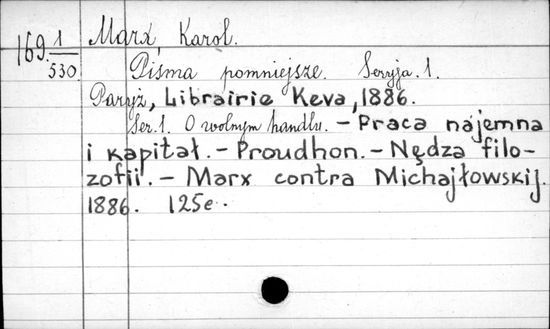 169. 1/530
Marx, Karol.
Pisma pomniejsze. Seryja. 1.
Paryż, Librairie Keva, 1886.
Ser. 1. O wolnym handlu. – Praca najemna
i kapitał. – Proudhon. – Nędza filo-
zofii. – Marx contra Michajłowskij.
1886. 125e.